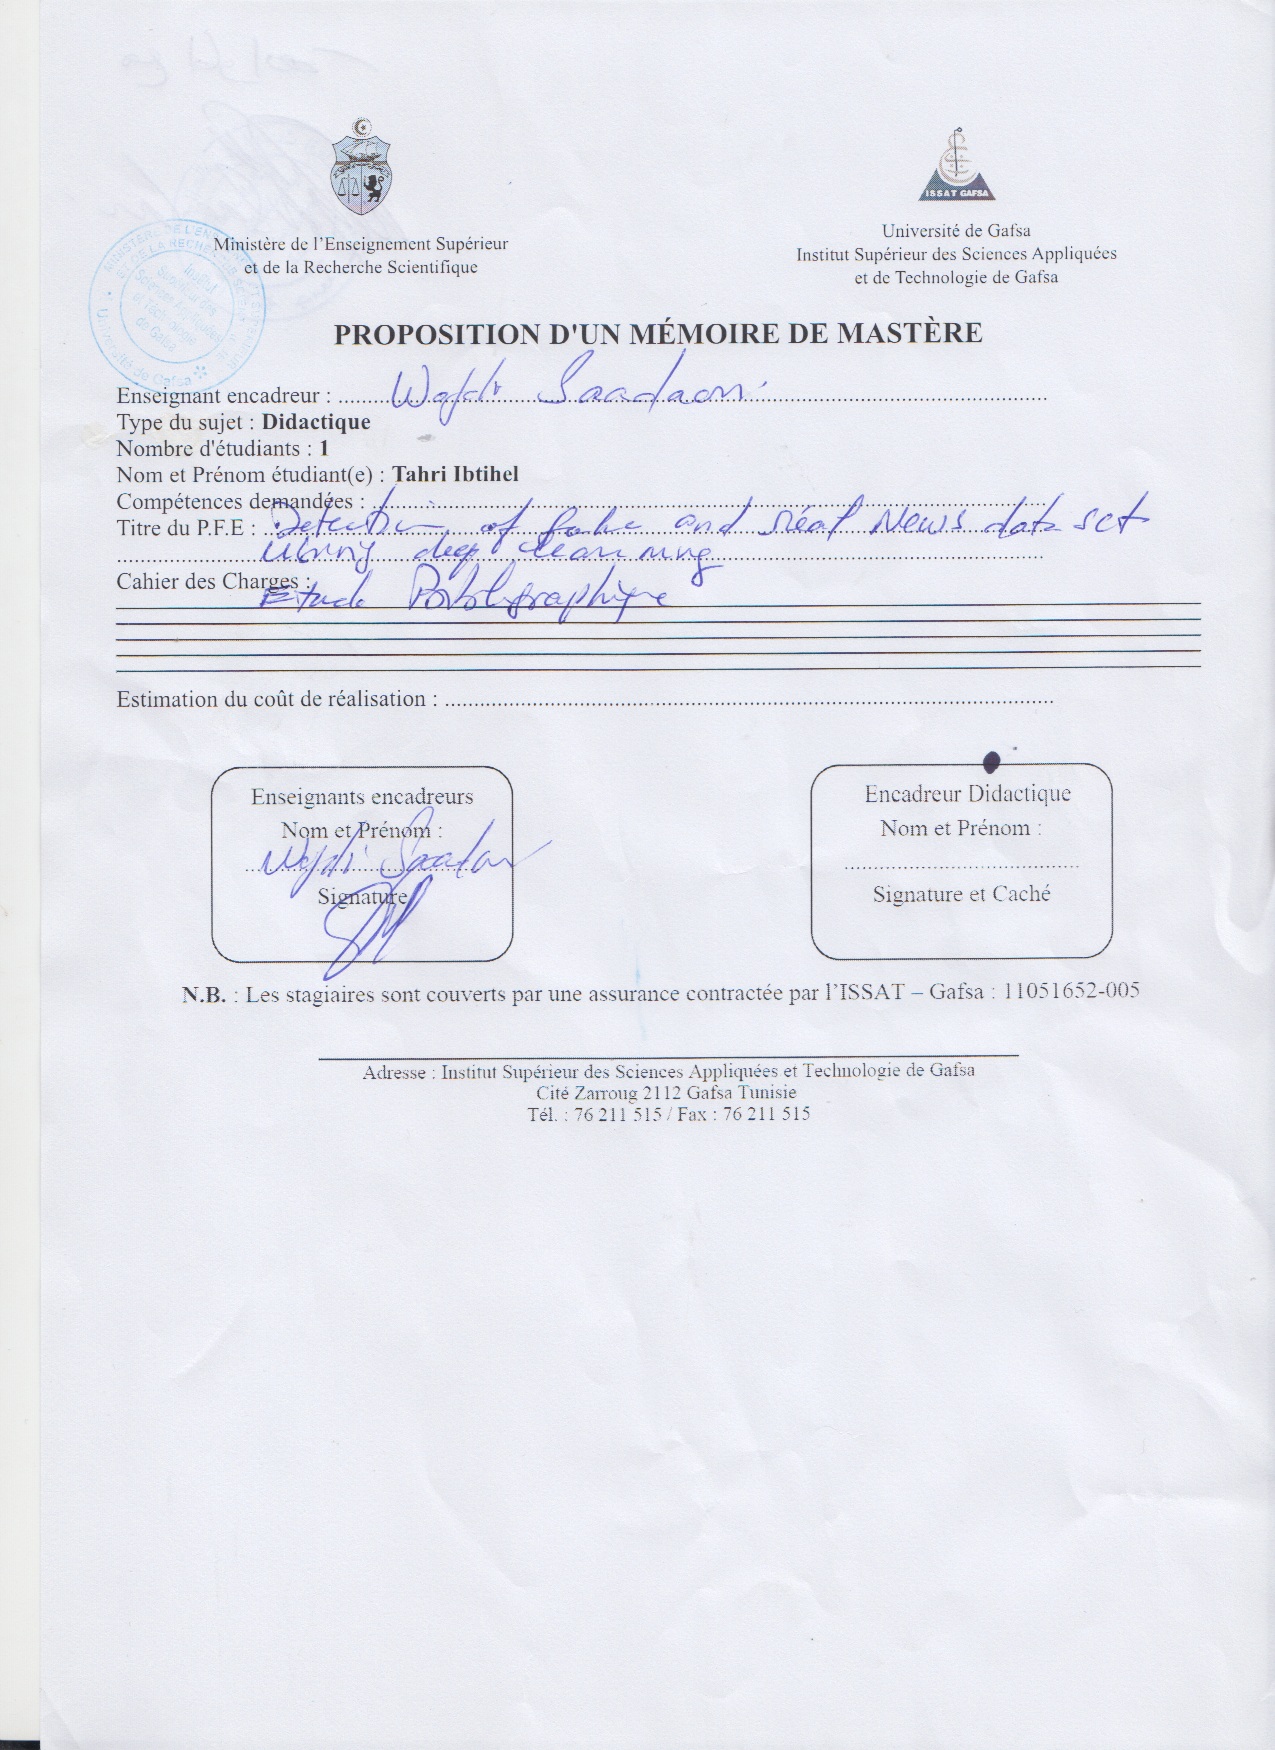 ISSAT GAFSA
Ministère de l'Enseignement Supérieur
et de la Recherche Scientifique
Université de Gafsa
Institut Supérieur des Sciences Appliquées
et de Technologie de Gafsa
PROPOSITION D'UN MÉMOIRE DE MASTÈRE
Enseignant encadreur : Wajdi Saadaoui
Type du sujet : Didactique
Nombre d'étudiants : 1
Nom et Prénom étudiant(e) : Tahri Ibtihel
Compétences demandées :
Titre du P.F.E : Detection of fake and réal News data set
using deep learning
Cahier des Charges :
Etude Bibliographique
Estimation du coût de réalisation :
Enseignants encadreurs
Nom et Prénom :
Wajdi
Signature
Encadreur Didactique
Nom et Prénom :
Signature et Caché
N.B. : Les stagiaires sont couverts par une assurance contractée par l'ISSAT – Gafsa : 11051652-005
Adresse : Institut Supérieur des Sciences Appliquées et Technologie de Gafsa
Cité Zarroug 2112 Gafsa Tunisie
Tél. : 76 211 515 / Fax : 76 211 515